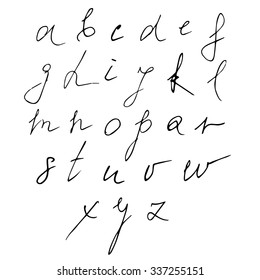 a b c d e f
g h i j k l
m n o p q r
s t u v w
x y z
www.shutterstock.com · 337255151